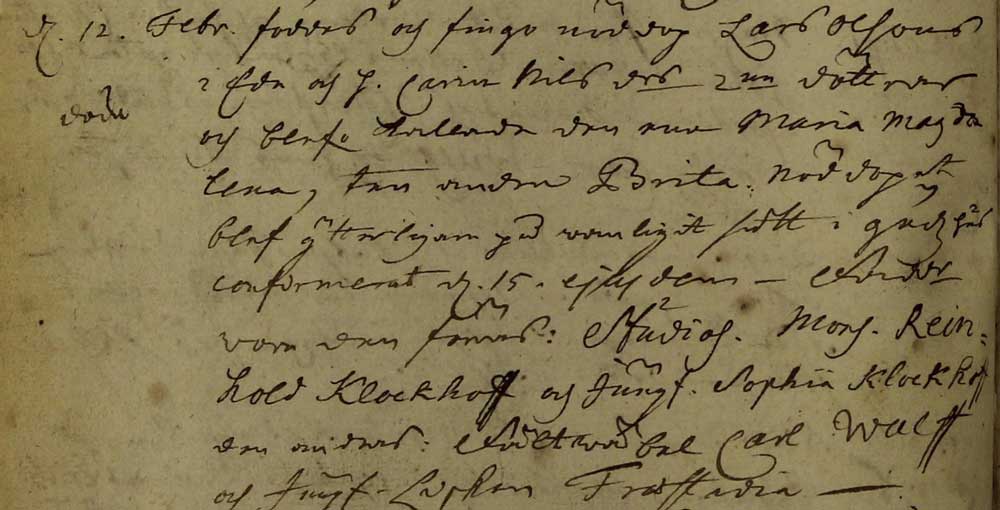 d. 12. Febr. föddes och fingo nöddop Lars Olsons
i Eda och h. Carin Nils drs 2nn döttrar
döda
och blefo kallade den ena Maria Magda
lena, den andra Brita. Nöddopet
blef ytterligare på wanligit sätt i gudz hus
confirmerat d. 15. ejusdem –
wore den förras: Studios. Mons. Rein-
hold Klockhoff och Jungf. Sophia Klockhoff
den andras: Fältwäbel Carl Wulff
och Jungf. –